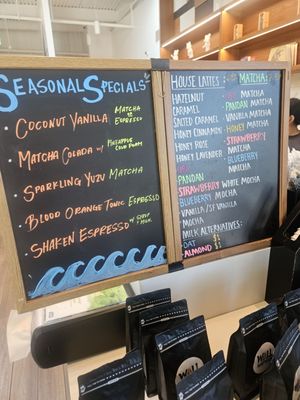 SEASONAL SPECIALS
COCONUT VANILLA MATCHA or ESPRESSO
MATCHA COLADA w/ PINEAPPLE COLD FOAM
SPARKLING YUZU MATCHA
BLOOD ORANGE TONIC ESPRESSO
SHAKEN ESPRESSO w/ SYRUP + MILK
HOUSE LATTES
HAZELNUT
CARAMEL
SALTED CARAMEL
HONEY CINNAMON
HONEY ROSE
HONEY LAVENDER
PANDAN
STRAWBERRY
BLUEBERRY MOCHA
VANILLA/SF VANILLA
MOCHA
MILK ALTERNATIVES:
OAT
ALMOND
MATCHA:
MATCHA
PANDAN MATCHA
VANILLA MATCHA
HONEY MATCHA
STRAWBERRY MATCHA
BLUEBERRY MATCHA
WHITE MOCHA